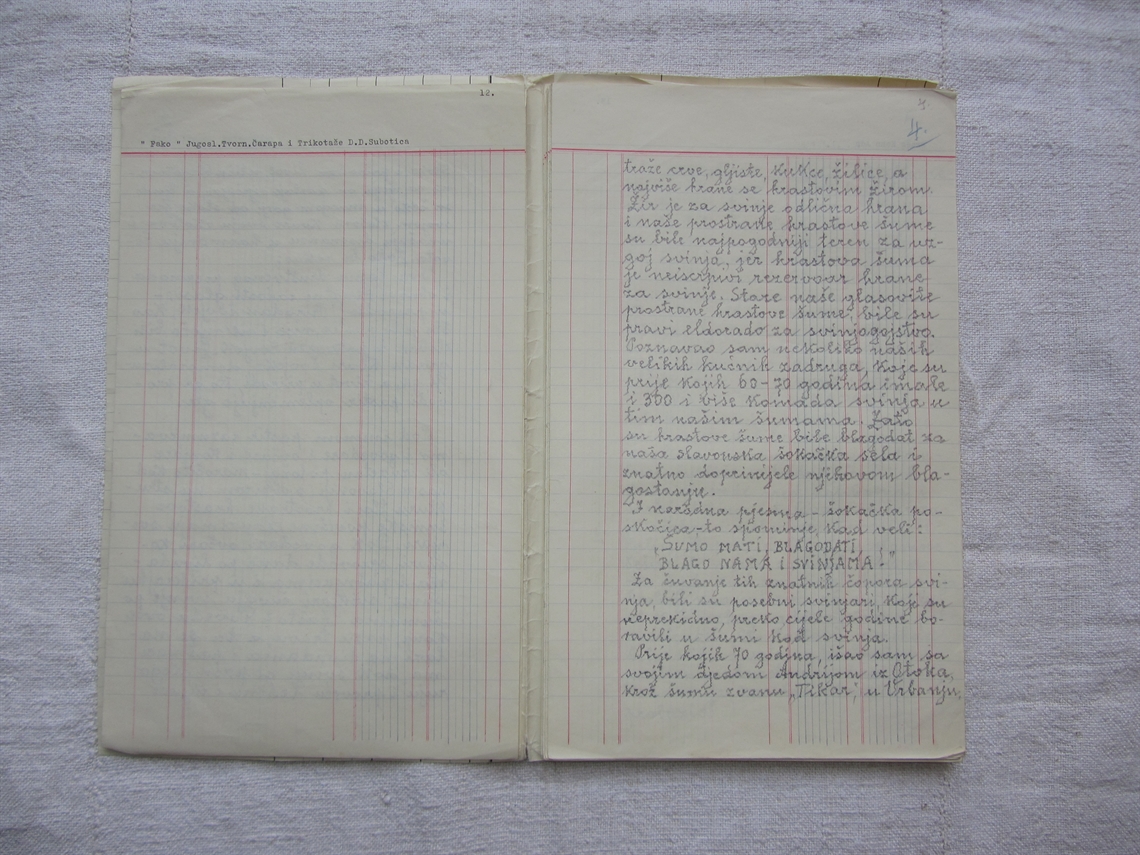 12.
" Fako " Jugosl.Tvorn.Čarapa i Trikotaže D.D.Subotica
4.
4.
traže crve, gljiste, kukce, žilice, a
najviše hrane se hrastovim žirom.
Žir je za svinje odlična hrana
i naše prostrane hrastove šume
su bile najpogodniji teren za uz-
goj svinja, jer hrastova šuma
je neiscrpivi rezervoar hrane
za svinje. Stare naše glasovite
prostrane hrastove šume, bile su
pravi eldorado za svinjogojstvo.
Poznavao sam nekoliko naših
velikih kućnih zadruga, koje su
prije kojih 60-70 godina imale
i 300 i više komada svinja u
tim našim šumama. Zato
su hrastove šume bile blagodat za
naša slavonska šokačka sela i
znatno doprinijele njihovom bla-
gostanju.
I narodna pjesma - šokačka po-
skočica - to spominje, kad veli:
„ŠUMO MATI, BLAGODATI,
BLAGO NAMA I SVINJAMA!"
Za čuvanje tih znatnih čopora svi-
nja, bili su posebni svinjari, koji su
neprekidno, preko cijele godine bo-
ravili u šumi kod svinja.
Prije kojih 70 godina, išao sam sa
svojim djedom Andrijom iz Otoka,
kroz šumu zvanu „Tikar", u Vrbanju,